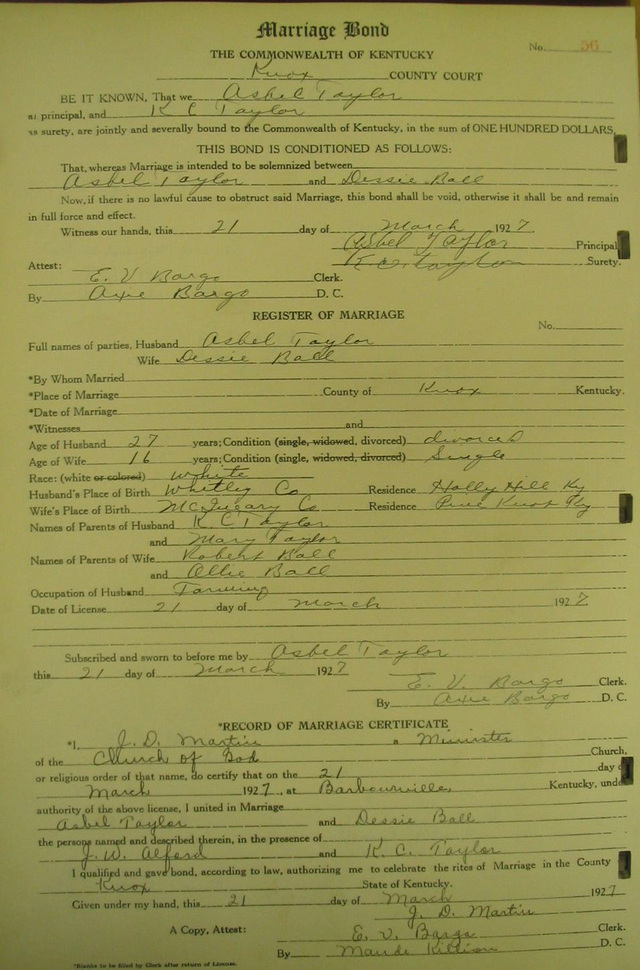 Marriage Bond
No. 56
THE COMMONWEALTH OF KENTUCKY
Knox COUNTY COURT
BE IT KNOWN, That we Asbel Taylor
as principal, and K C Taylor
as surety, are jointly and severally bound to the Commonwealth of Kentucky, in the sum of ONE HUNDRED DOLLARS,
THIS BOND IS CONDITIONED AS FOLLOWS:
That, whereas Marriage is intended to be solemnized between
Asbel Taylor and Dessie Ball
Now, if there is no lawful cause to obstruct said Marriage, this bond shall be void, otherwise it shall be and remain
in full force and effect.
Witness our hands, this 21 day of March 1927
Asbel Taylor Principal
Attest: K C Taylor Surety.
E. V Bargo Clerk.
By Axie Bargo D. C.
REGISTER OF MARRIAGE
No.
Full names of parties. Husband Asbel Taylor
Wife Dessie Ball
*By Whom Married
*Place of Marriage County of Knox Kentucky.
*Date of Marriage
*Witnesses and
Age of Husband 27 years; Condition (single, widowed, divorced) divorced
Age of Wife 16 years; Condition (single, widowed, divorced) Single
Race: (white or colored) White
Husband's Place of Birth Whitley Co Residence Holly Hill Ky
Wife's Place of Birth McCreary Co Residence Knox Ky
Names of Parents of Husband K. C Taylor
and Mary Taylor
Names of Parents of Wife Robert Ball
and Ollie Ball
Occupation of Husband Farming
Date of License 21 day of March 1927
Subscribed and sworn to before me by Asbel Taylor
this 21 day of March 1927
E. V. Bargo Clerk.
By Axie Bargo D. C.
*RECORD OF MARRIAGE CERTIFICATE
*I, J. D. Martin a Minister
of the Church of God Church,
or religious order of that name, do certify that on the 21 day
March 1927, at Barbourville, Kentucky, und
authority of the above license, I united in Marriage
Asbel Taylor and Dessie Ball
the persons named and described therein, in the presence of
J. W. Alford and K. C. Taylor
I qualified and gave bond, according to law, authorizing me to celebrate the rites of Marriage in the County
Knox State of Kentucky.
Given under my hand, this 21 day of March 1927
J. D. Martin
A Copy, Attest: E. V. Bargo Clerk
By Maude Killion D. C.
*Blanks to be filed by Clerk after return of License.